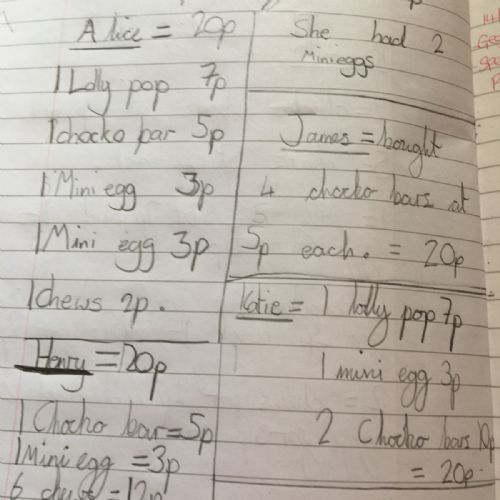 Alice = 20p
1 Lolly pop 7p
1 chocko bar 5p
1 Mini egg 3p
1 Mini egg 3p
1 chews 2p.
Henry = 20p
1 Chocko bar = 5p
1 Mini egg = 3p
6 chews = 12p
She had 2
Mini eggs
James = bought
4 chocko bars at
5p each. = 20p
Katie = 1 lolly pop 7p
1 mini egg 3p
2 Chocko bars 10p
= 20p.